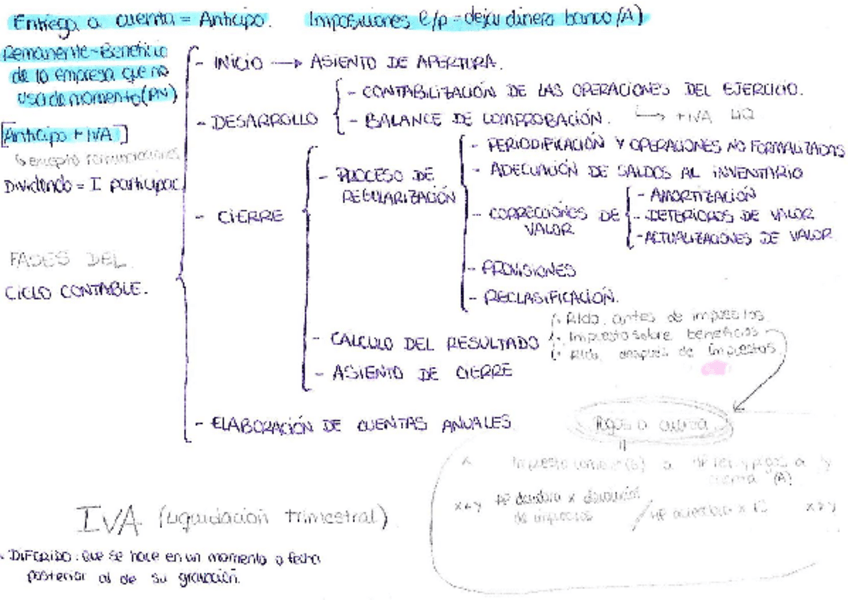 Entrega a cuenta = Anticipo. Imposiciones l/p = dejar dinero banco (A)
Remanente - Beneficio
de la empresa que no
usa de momento (PN)
[Anticipo + IVA]
↳ excepto
Dividendo = I particip
FASES DEL
CICLO CONTABLE.
- INICIO → ASIENTO DE APERTURA.
- DESARROLLO
- CONTABILIZACIÓN DE LAS OPERACIONES DEL EJERCICIO.
- BALANCE DE COMPROBACIÓN. ↳ + IVA LIQ
- CIERRE
- PROCESO DE
REGULARIZACIÓN
- PERIODIFICACIÓN Y OPERACIONES NO FORMALIZADAS
- ADECUACIÓN DE SALDOS AL INVENTARIO
- CORRECCIONES DE
VALOR
- AMORTIZACIÓN
- DETERIOROS DE VALOR
- ACTUALIZACIONES DE VALOR
- PROVISIONES
- RECLASIFICACIÓN.
- CALCULO DEL RESULTADO
Rtdo. antes de impuestos
Impuesto sobre beneficios
Rtdo. después de Impuestos
- ASIENTO DE CIERRE
- ELABORACIÓN DE CUENTAS ANUALES
Pagos a cuenta
x a HP y pagos a y
cuenta (A)
x<y HP deudora x devolución
de impuestos / HP acreedora x IS x>y
IVA (Liquidación trimestral)
. DIFERIDO: Que se hace en un momento o fecha
posterior al de su grabación.